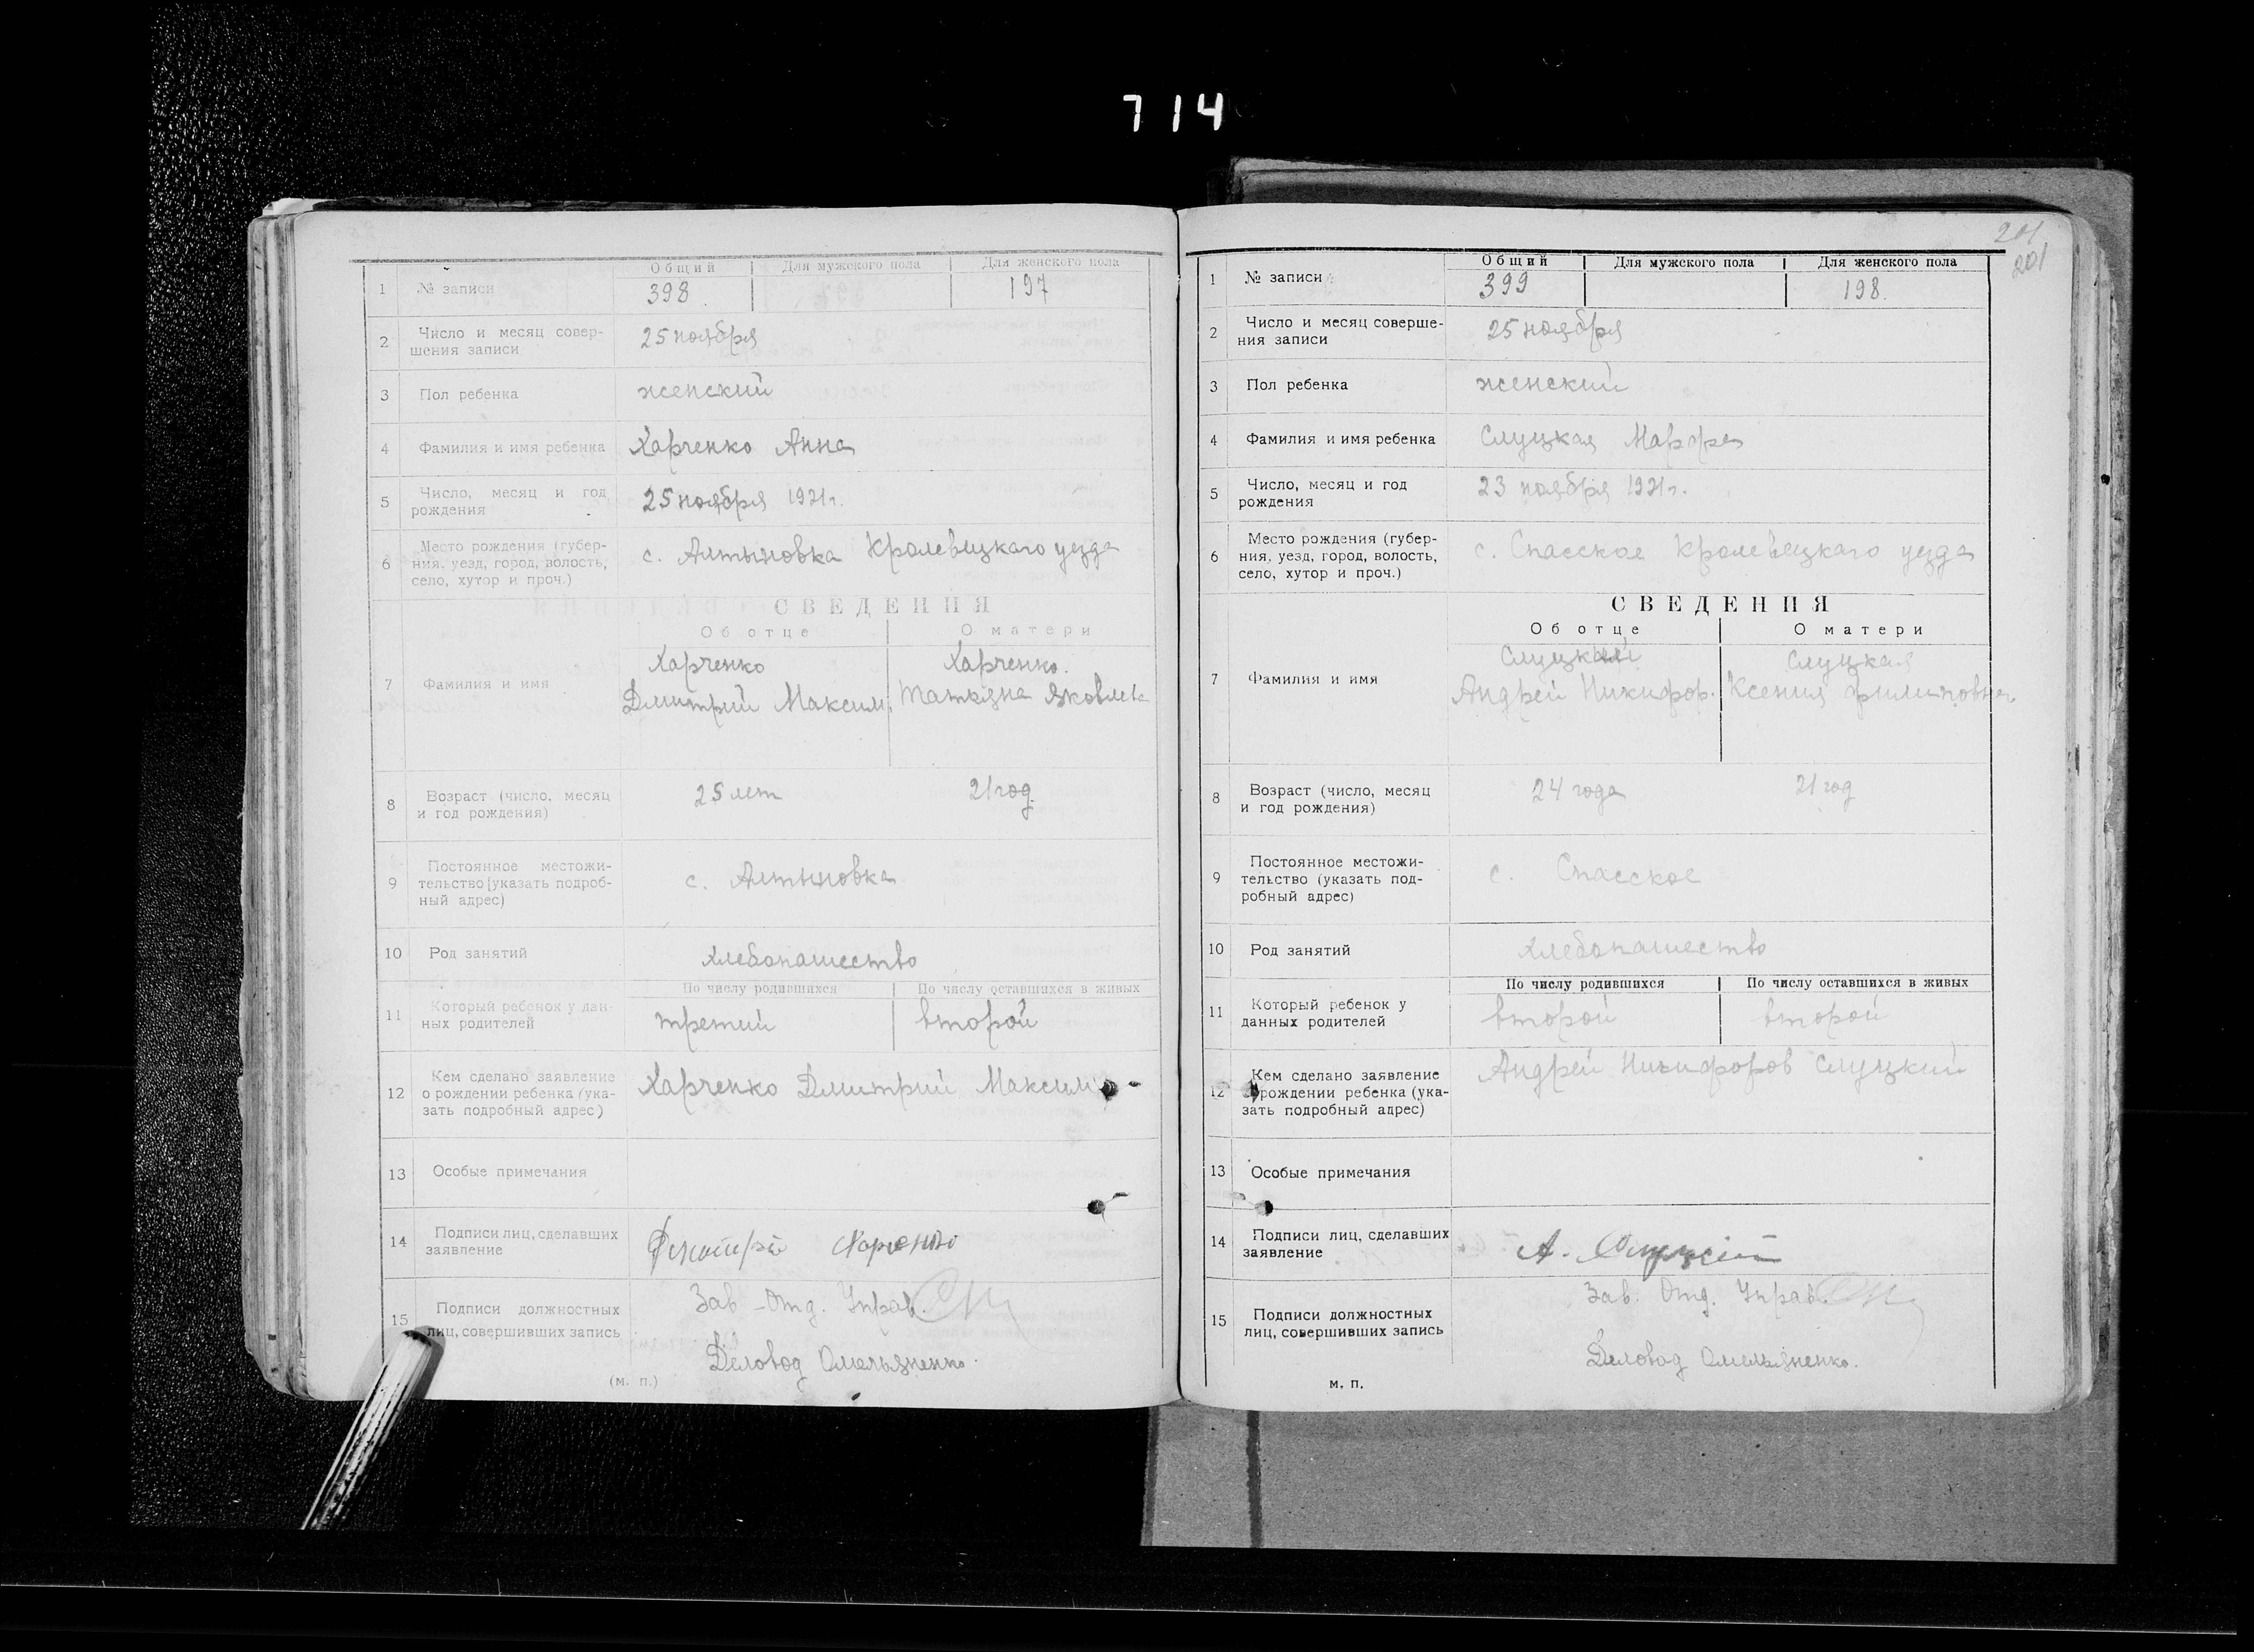 714
Общий Для мужского пола Для женского пола
1 № записи 398 197
2 Число и месяц совер-
шения записи 25 ноября
3 Пол ребенка женский
4 Фамилия и имя ребенка Харченко Анна
5 Число, месяц и год
рождения 25 ноября 1921 г.
6 Место рождения (губер-
ния, уезд, город, волость,
село, хутор и проч.) с. Алтыновка Кролевецкаго уезда
СВЕДЕНИЯ
Об отце О матери
7 Фамилия и имя Харченко Харченко.
Дмитрий Максим. Татьяна Яковлевна
8 Возраст (число, месяц
и год рождения) 25 лет 21 год.
9 Постоянное местожи-
тельство [указать подроб-
ный адрес) с. Алтыновка
10 Род занятий хлебопашество
По числу родившихся По числу оставшихся в живых
11 Который ребенок у дан-
ных родителей третий второй
12 Кем сделано заявление
о рождении ребенка (ука-
зать подробный адрес) Харченко Дмитрий Максим
13 Особые примечания
14 Подписи лиц, сделавших
заявление Харченко
Зав. Отд. Управ.
15 Подписи должностных
лиц, совершивших запись
Деловод Омельяненко.
(м. п.)
201
201
Общий Для мужского пола Для женского пола
1 № записи 399 198.
2 Число и месяц соверше-
ния записи 25 ноября
3 Пол ребенка женский
4 Фамилия и имя ребенка Слуцкая Марфа
5 Число, месяц и год
рождения 23 ноября 1921 г.
6 Место рождения (губер-
ния, уезд, город, волость,
село, хутор и проч.) с. Спасское Кролевецкаго уезда
СВЕДЕНИЯ
Об отце О матери
7 Фамилия и имя Слуцкий Слуцкая
Андрей Никифор. Ксения Филиповна.
8 Возраст (число, месяц
и год рождения) 24 года 21 год
9 Постоянное местожи-
тельство (указать под-
робный адрес) с. Спасское
10 Род занятий хлебопашество
По числу родившихся По числу оставшихся в живых
11 Который ребенок у
данных родителей второй второй
12 Кем сделано заявление
о рождении ребенка (ука-
зать подробный адрес) Андрей Никифоров Слуцкий
13 Особые примечания
14 Подписи лиц, сделавших
заявление А. Слуцкий
Зав. Отд. Управ.
15 Подписи должностных
лиц, совершивших запись
Деловод Омельяненко.
м. п.